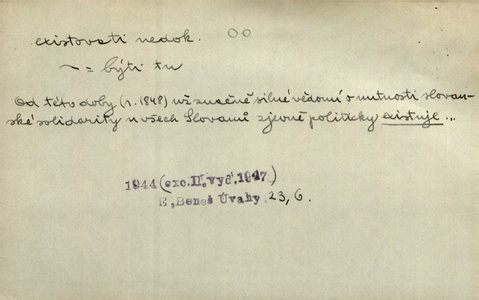 existovati nedok. OO
~ = býti tu
Od této doby (r. 1848) už značně silné vědomí o nutnosti slovan-
ské solidarity u všech Slovanů zjevně politicky existuje...
1944 (exc. II, vyd. 1947)
E, Beneš Úvahy 23, 6.